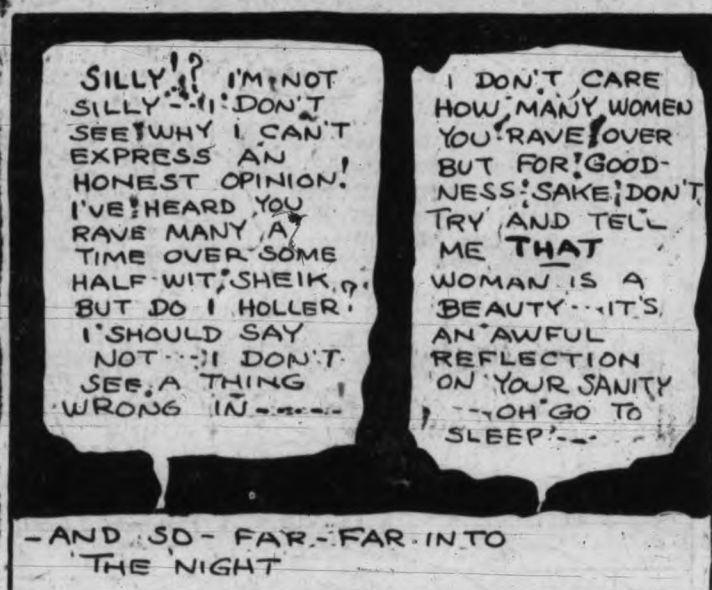 SILLY!? I'M NOT
SILLY -- I DON'T
SEE WHY I CAN'T
EXPRESS AN
HONEST OPINION!
I'VE HEARD YOU
RAVE MANY A
TIME OVER SOME
HALF-WIT SHEIK
BUT DO I HOLLER?
I SHOULD SAY
NOT --- I DON'T
SEE A THING
WRONG IN -----
I DON'T CARE
HOW MANY WOMEN
YOU RAVE OVER
BUT FOR GOOD-
NESS SAKE DON'T
TRY AND TELL
ME THAT
WOMAN IS A
BEAUTY --- IT'S
AN AWFUL
REFLECTION
ON YOUR SANITY
--- OH GO TO
SLEEP ---
- AND SO - FAR - FAR INTO
THE NIGHT